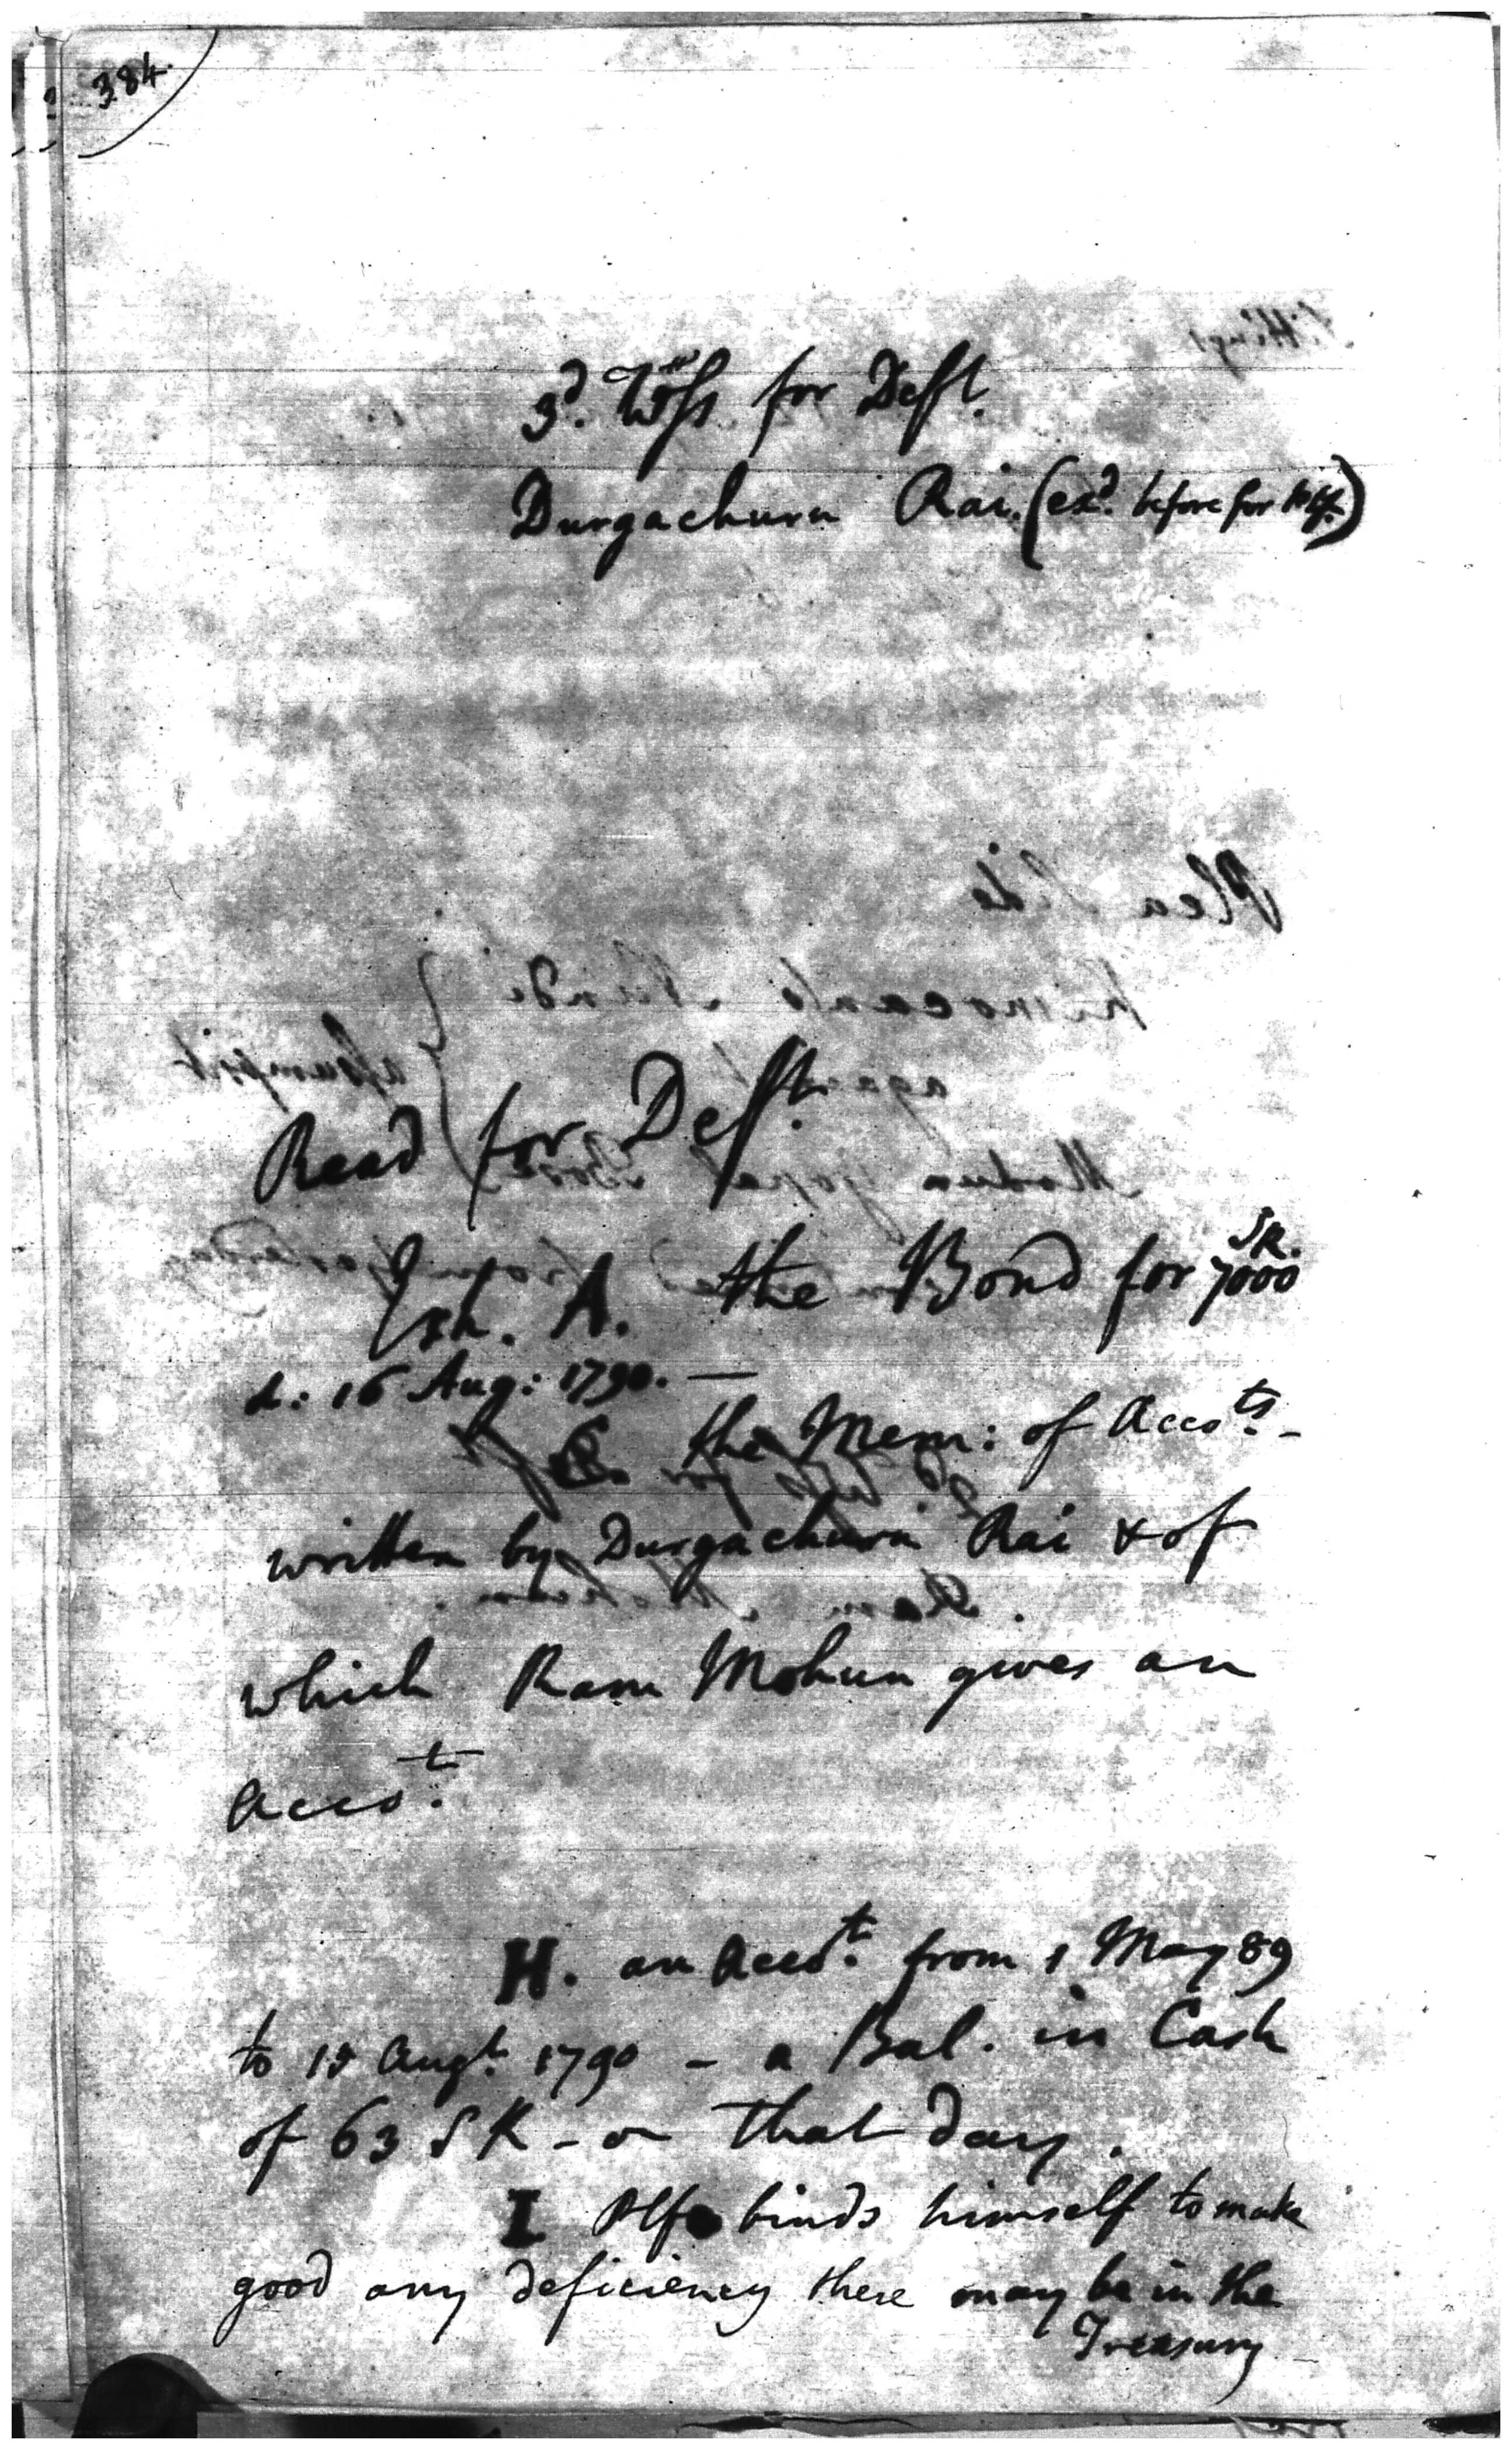 384.
3d. Wss. for Deft.
Durgachurn Rai. (exd. before for Plf.)
Read for Deft.
Exh. A. the Bond for 7000 SR.
d: 16 Aug: 1790. —
the Mem: of Accots. -
written by Durgachurn Rai & of
which Ram Mohun gives an
accot.
H. an Accot. from 1 May 89
to 15 Augt. 1790 - a Bal. in Cash
of 63 SR - on that day.
I Plf binds himself to make
good any deficiency there may be in the
Treasury